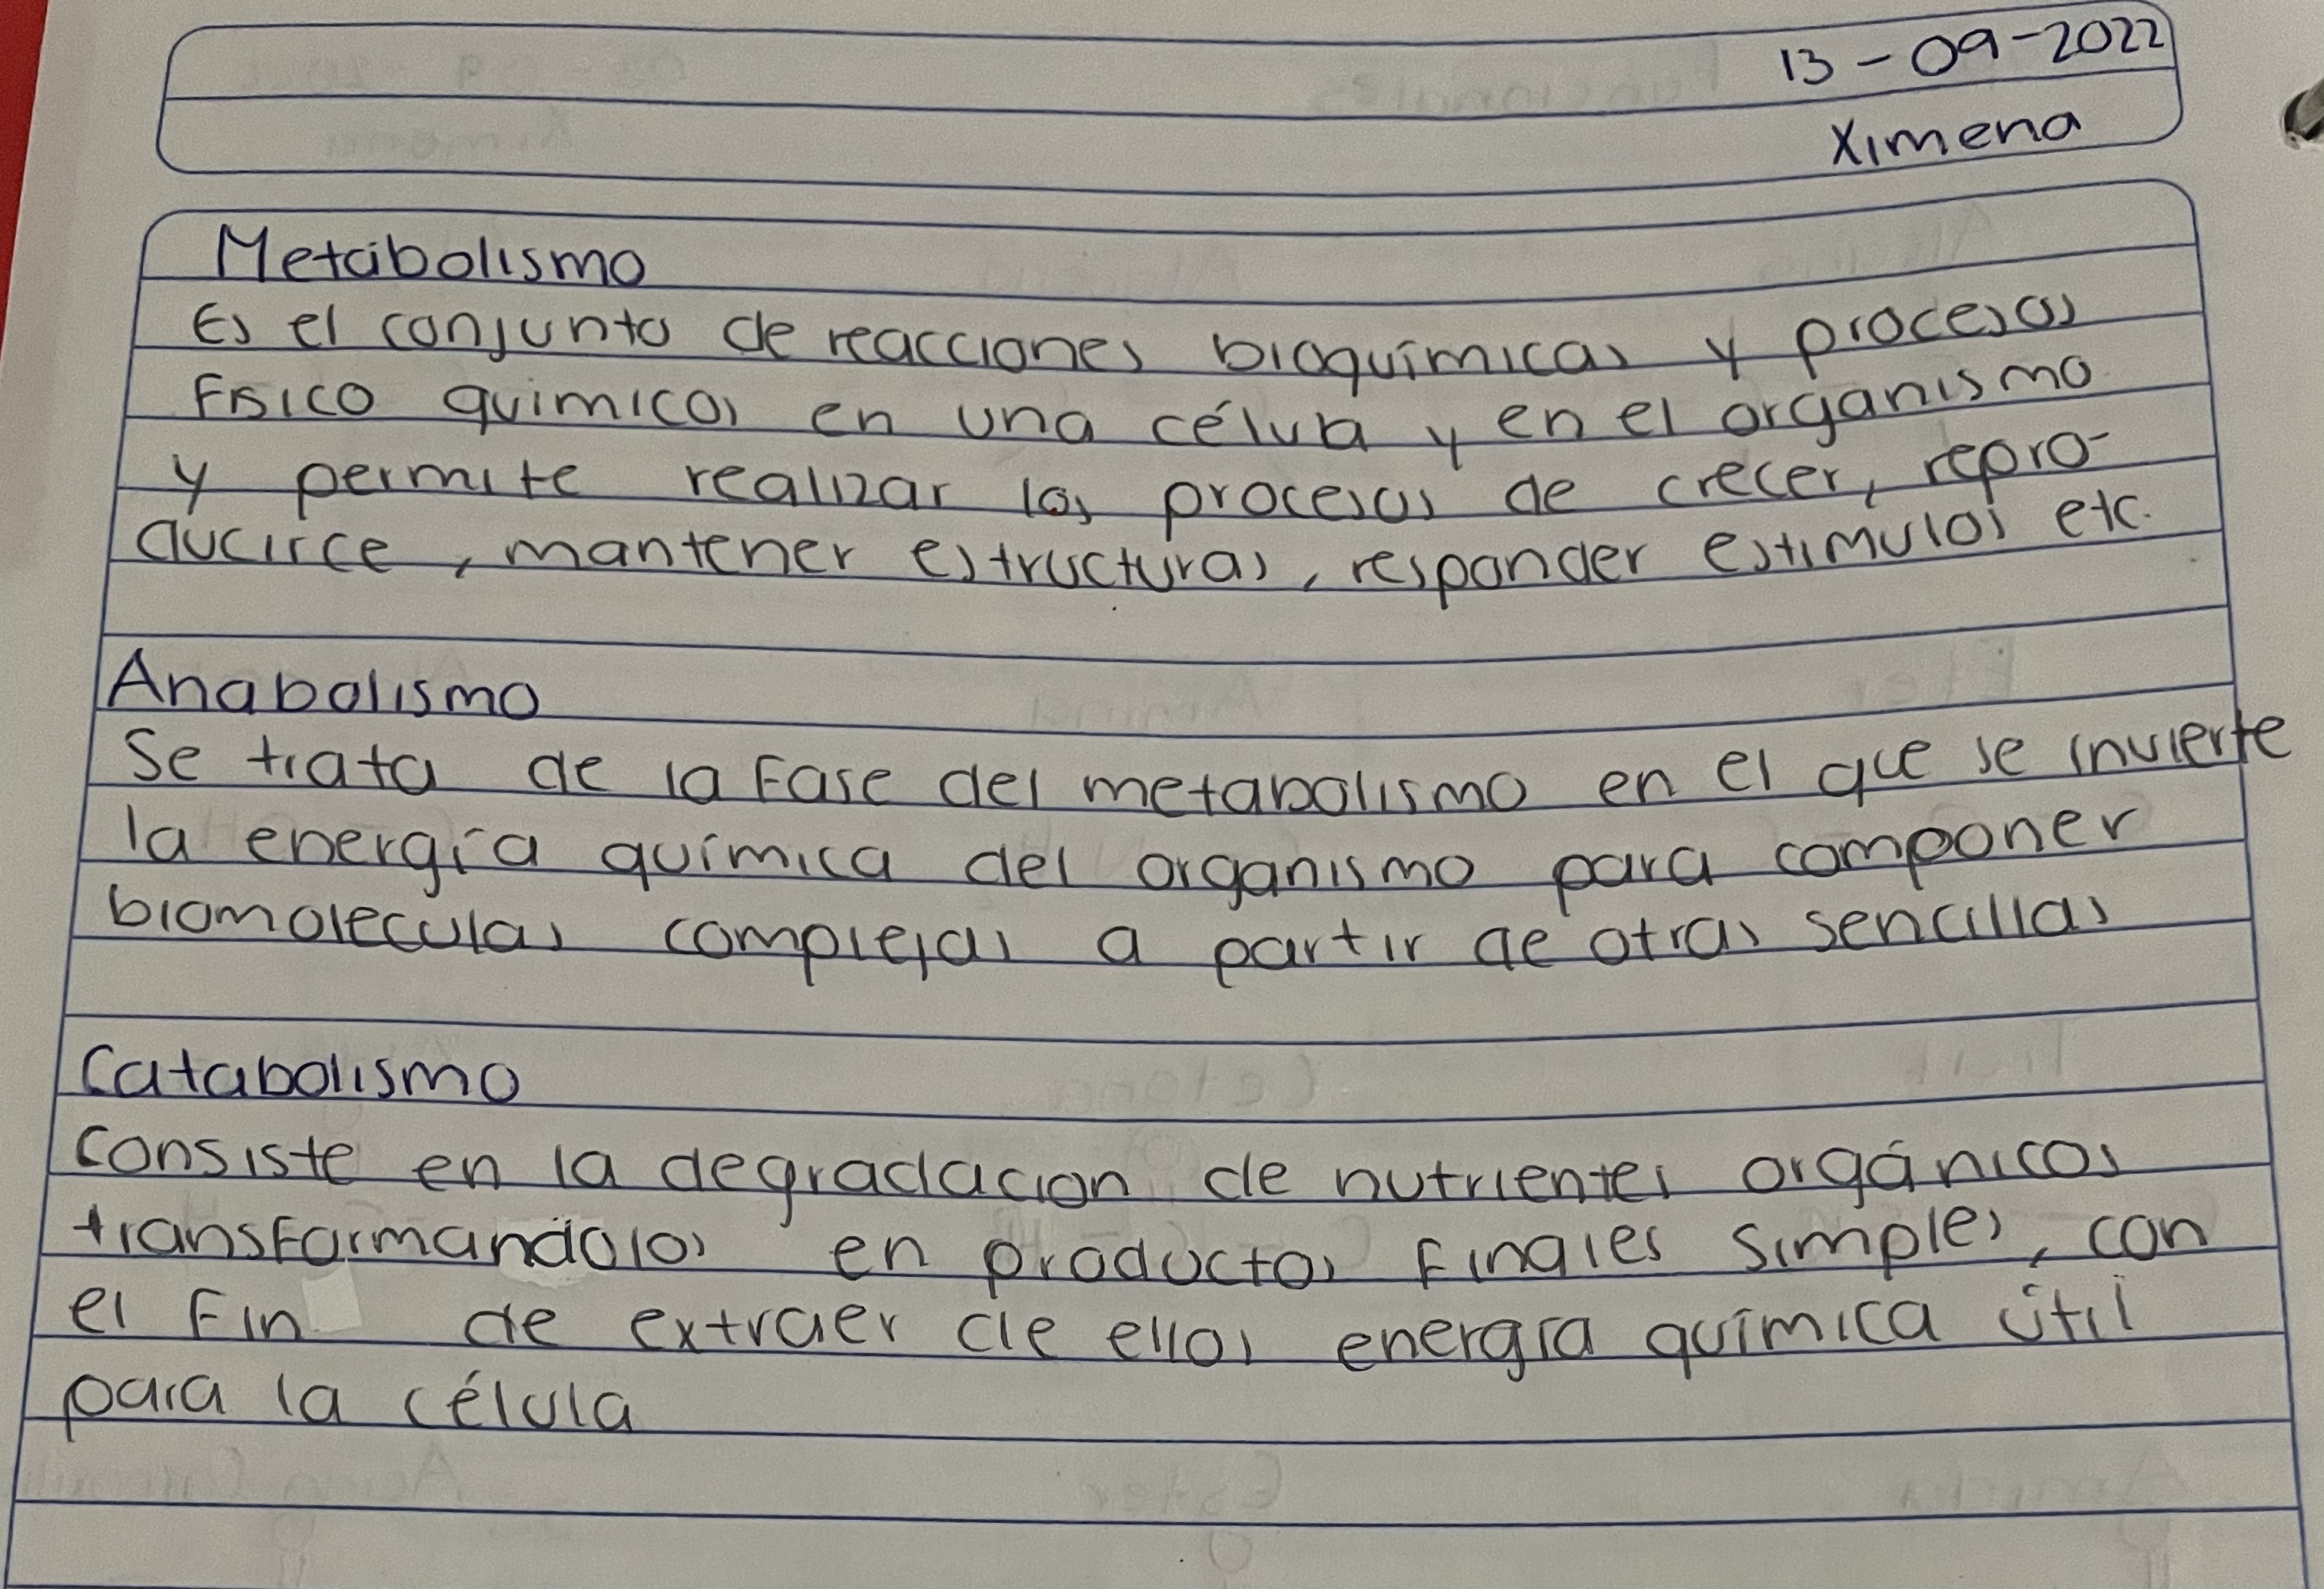 13-09-2022
Ximena
Metabolismo
Es el conjunto de reacciones bioquímicas y procesos
Fisico quimicos en una célula y en el organismo
y permite realizar los procesos de crecer, repro-
ducirce, mantener estructuras, responder estimulos etc.
Anabolismo
Se trata de la Fase del metabolismo en el que se invierte
la energía química del organismo para componer
biomoleculas complejas a partir de otras sencillas
Catabolismo
Consiste en la degradacion de nutrientes orgánicos
transFormandolos en productos Finales simples, con
el Fin de extraer de ellos energía química útil
para la célula